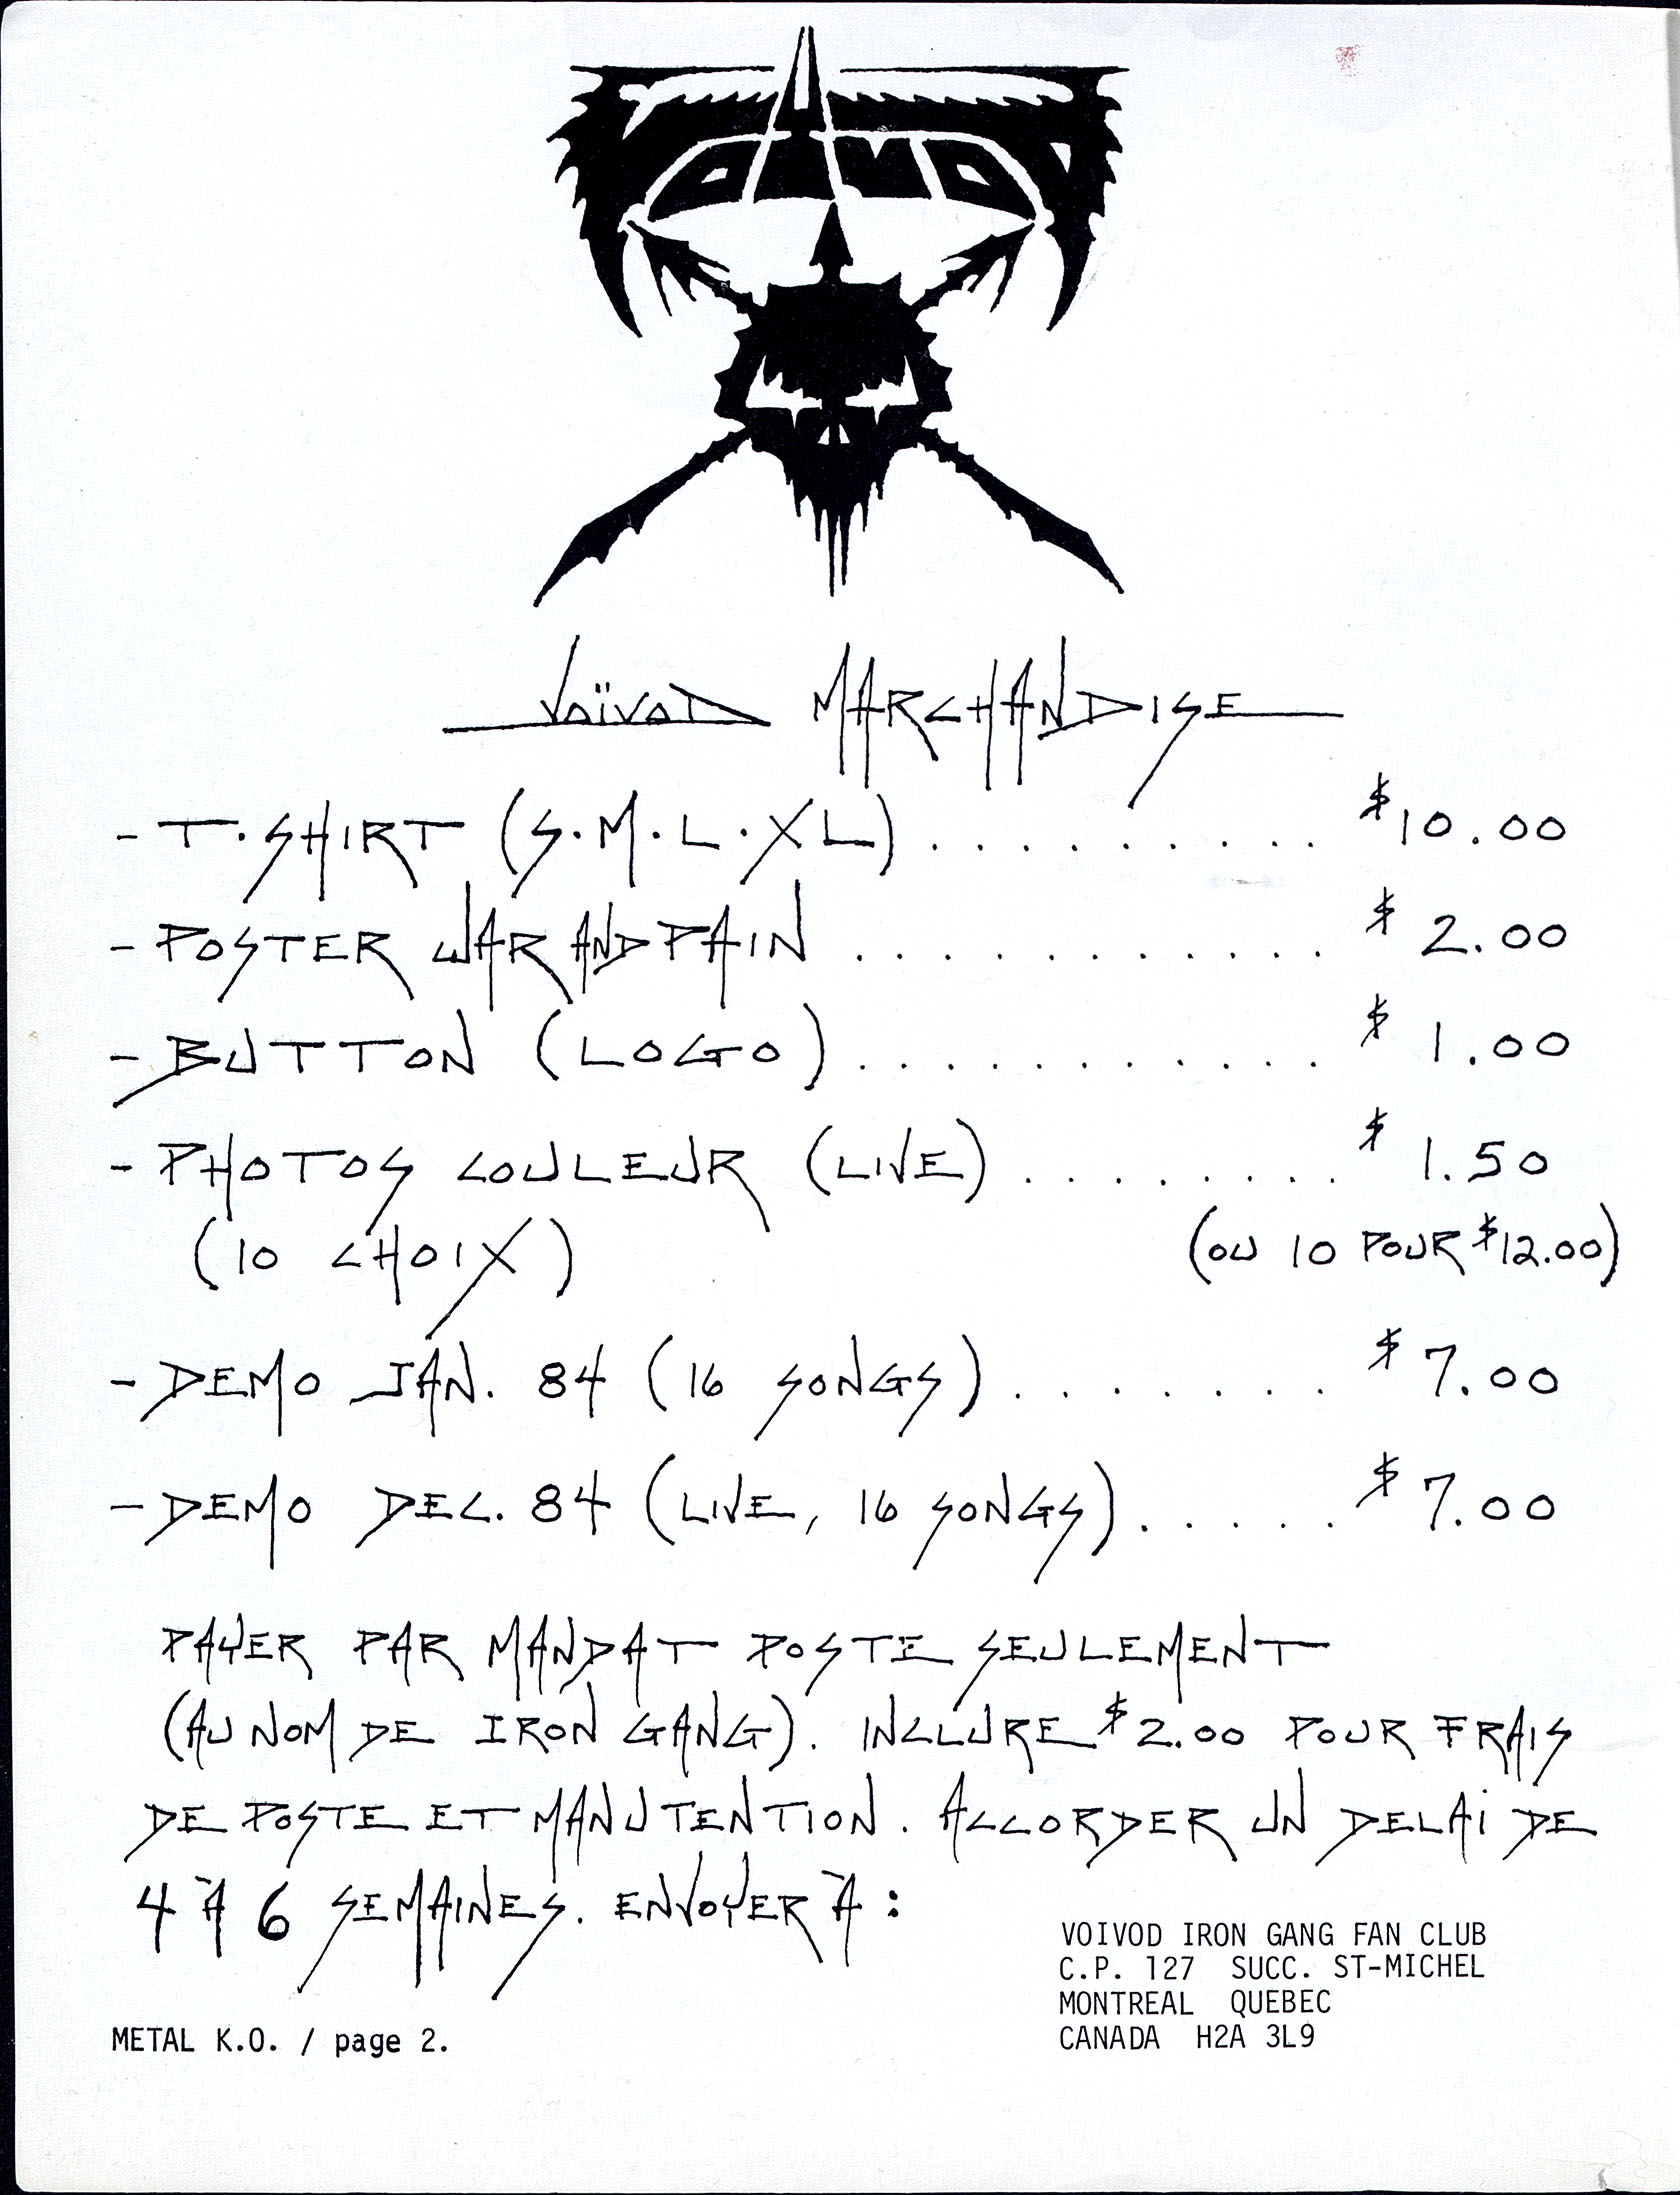 VOIVOD
VOÏVOD MARCHANDISE
- T.SHIRT (S.M.L.XL) .......... $10.00
- POSTER WAR AND PAIN ............. $2.00
- BUTTON (LOGO) ............ $1.00
- PHOTOS COULEUR (LIVE) ......... $1.50
(10 CHOIX) (OU 10 POUR $12.00)
- DEMO JAN. 84 (16 SONGS) ......... $7.00
- DEMO DEC. 84 (LIVE, 16 SONGS) ..... $7.00
PAYER PAR MANDAT POSTE SEULEMENT
(AU NOM DE IRON GANG). INCLURE $2.00 POUR FRAIS
DE POSTE ET MANUTENTION. ACCORDER UN DELAI DE
4 À 6 SEMAINES. ENVOYER À :
VOIVOD IRON GANG FAN CLUB
C.P. 127 SUCC. ST-MICHEL
MONTREAL QUEBEC
CANADA H2A 3L9
METAL K.O. / page 2.